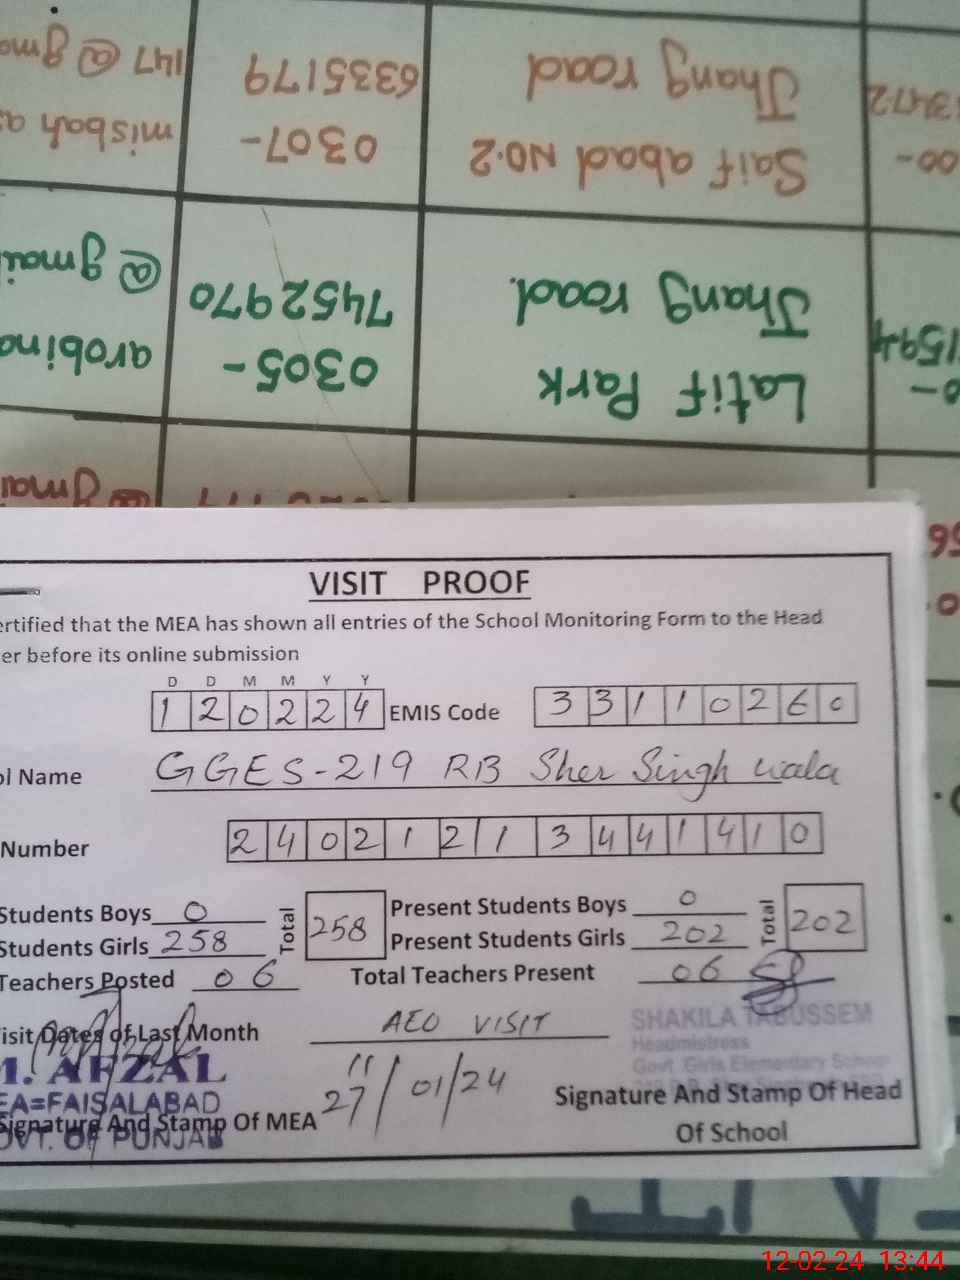 147 @ gma
6335179
Jhang road
3472
misbah as
0307-
Saif abad NO.2
00-
@ gmai
7452970
Jhang road.
1594
arobina
0305-
Latif Park
0-
@ gmai
56
0.
VISIT PROOF
ertified that the MEA has shown all entries of the School Monitoring Form to the Head
er before its online submission
D D M M Y Y
1 2 0 2 2 4 EMIS Code 3 3 1 1 0 2 6 0
ol Name GGES-219 RB Sher Singh wala
Number 2 4 0 2 1 2 1 1 3 4 4 1 4 1 0
Students Boys 0 Total 258 Present Students Boys 0 Total 202
Students Girls 258 Present Students Girls 202
Teachers Posted 06 Total Teachers Present 06
isit Dates of Last Month AEO VISIT
SHAKILA TABUSSEM
Headmistress
Govt. Girls Elementary School
M. AFZAL
EA=FAISALABAD
OVT. OF PUNJAB
27/01/24
Signature And Stamp Of MEA
Signature And Stamp Of Head
Of School
12-02-24 13:44